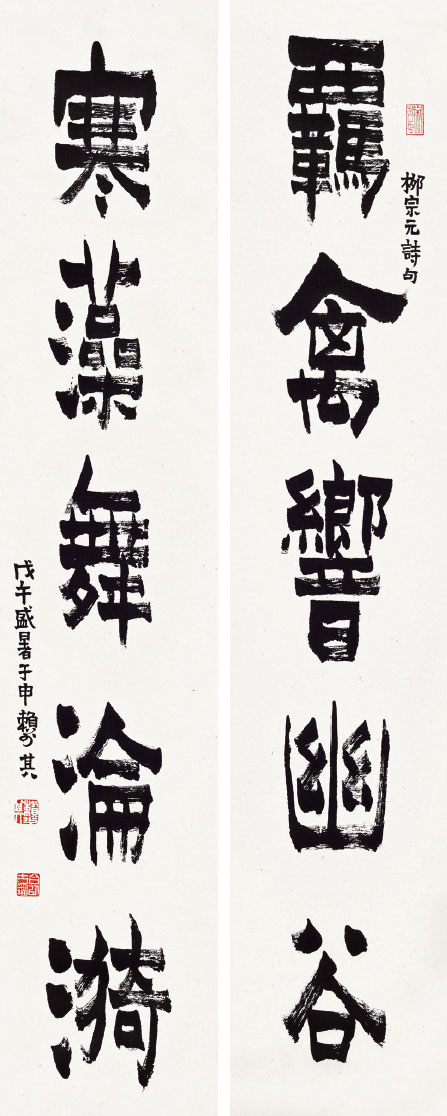 柳宗元詩句
覊禽響幽谷
寒藻舞淪漪
戊午盛暑于申賴少其